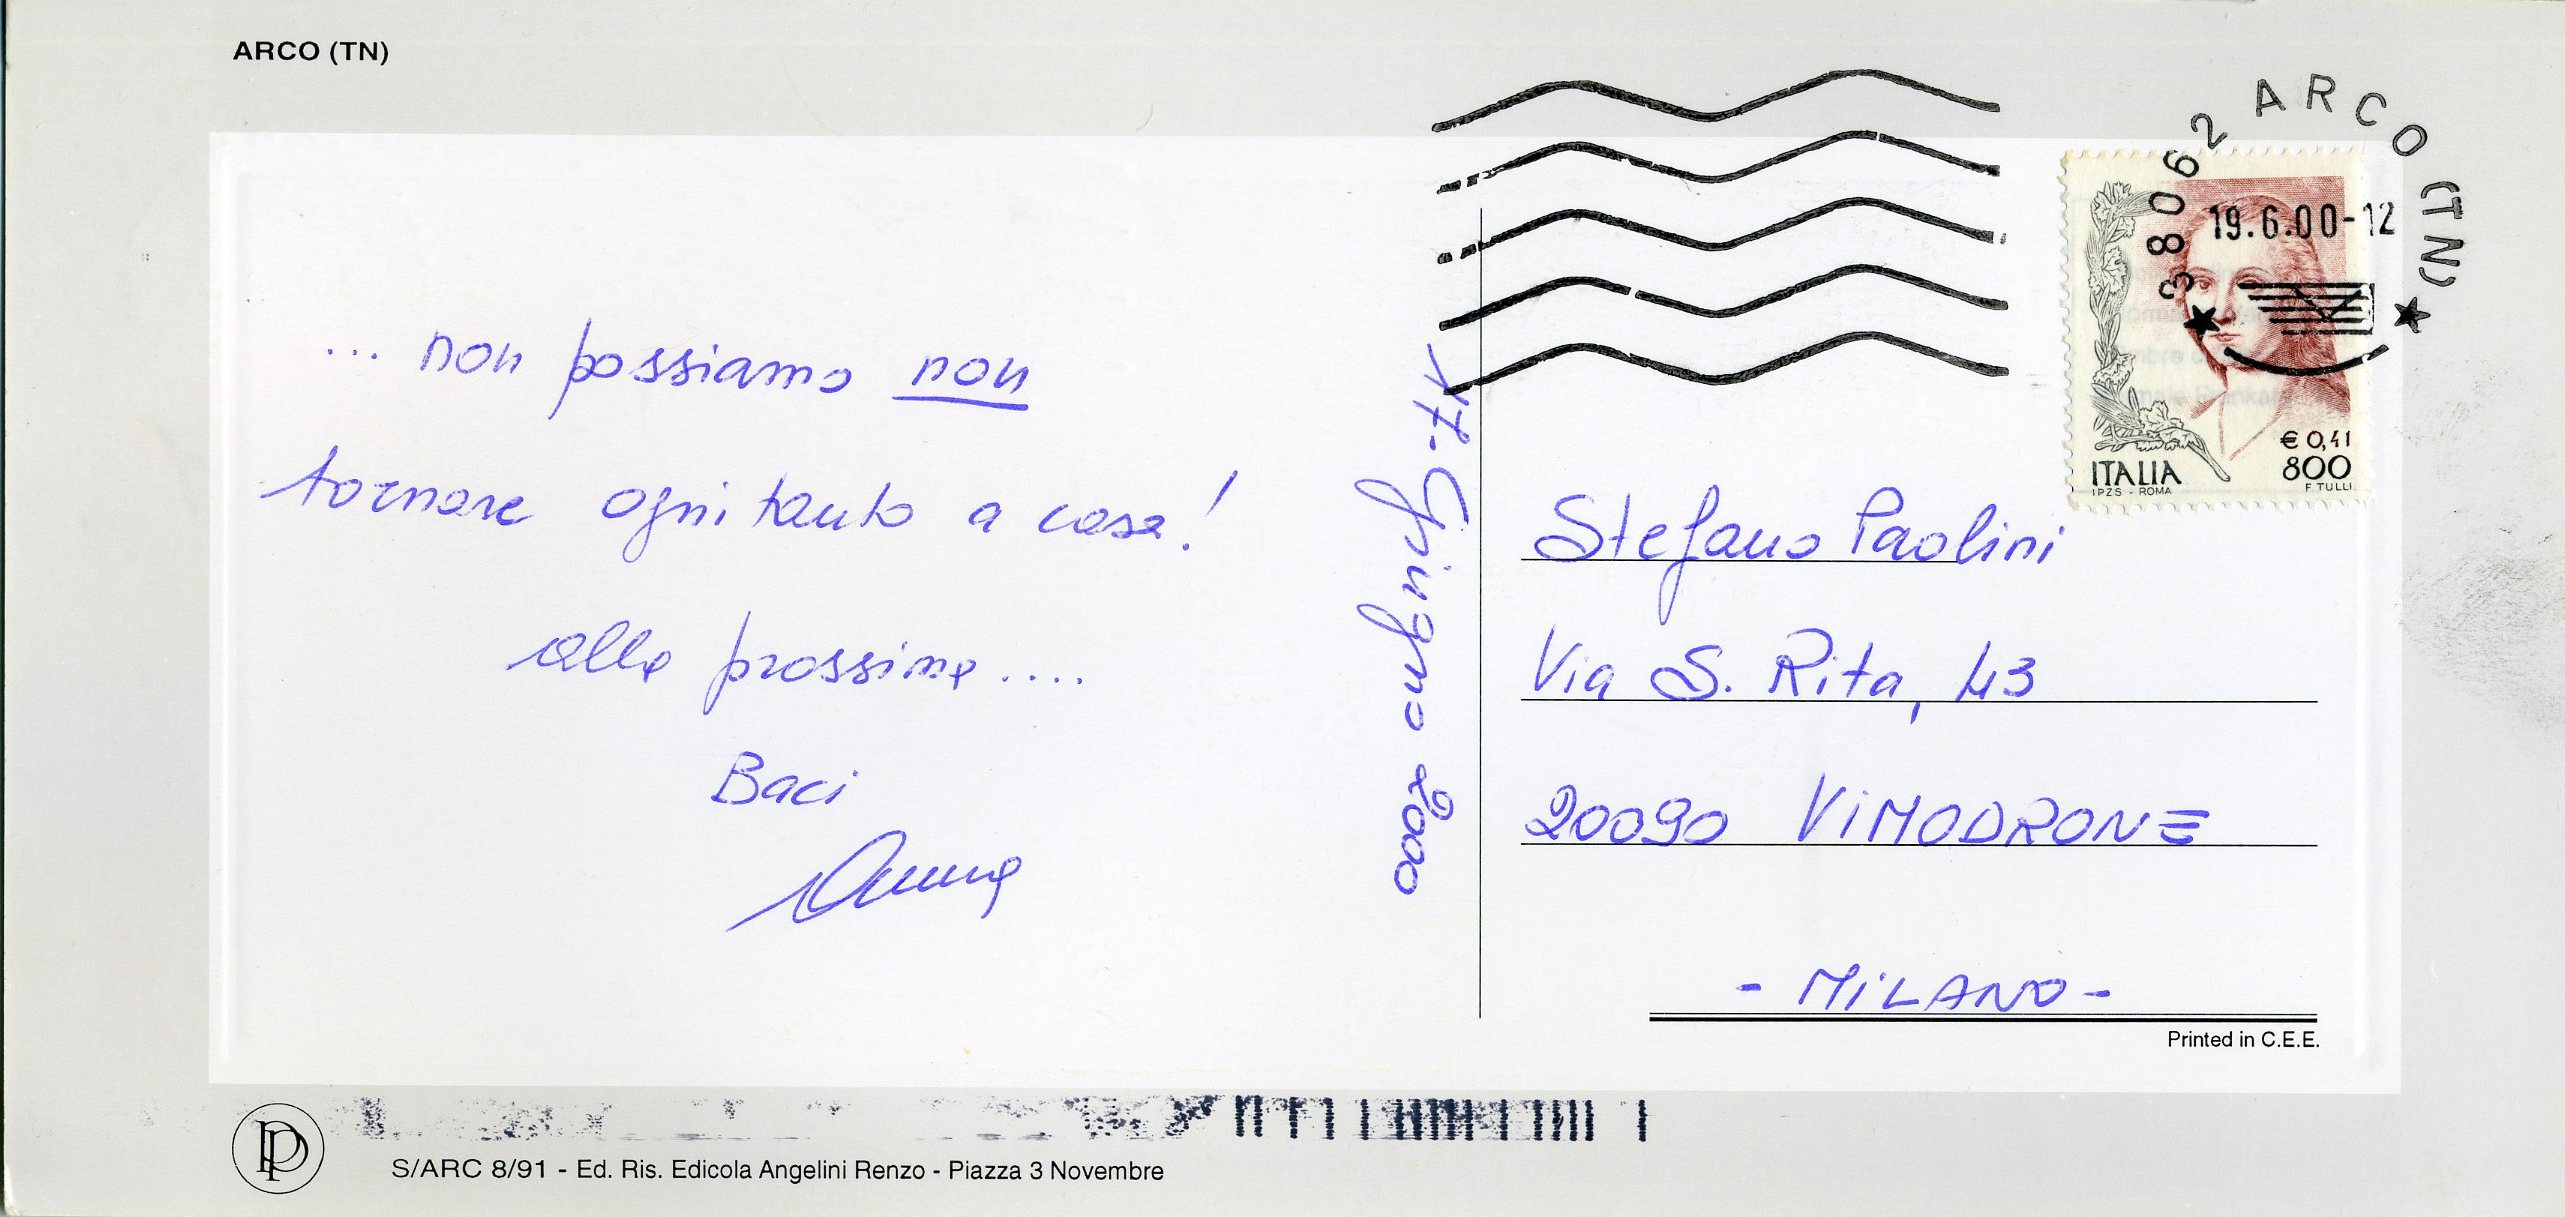 ARCO (TN)
... non possiamo non
tornare ogni tanto a casa!
alla prossima ....
Baci
Anna
17. Giugno 2000
38062 ARCO (TN)
19.6.00-12
€ 0,41
800
ITALIA
IPZS - ROMA
F. TULLI
Stefano Paolini
Via S. Rita, 43
20090 VIMODRONE
- MILANO -
Printed in C.E.E.
S/ARC 8/91 - Ed. Ris. Edicola Angelini Renzo - Piazza 3 Novembre